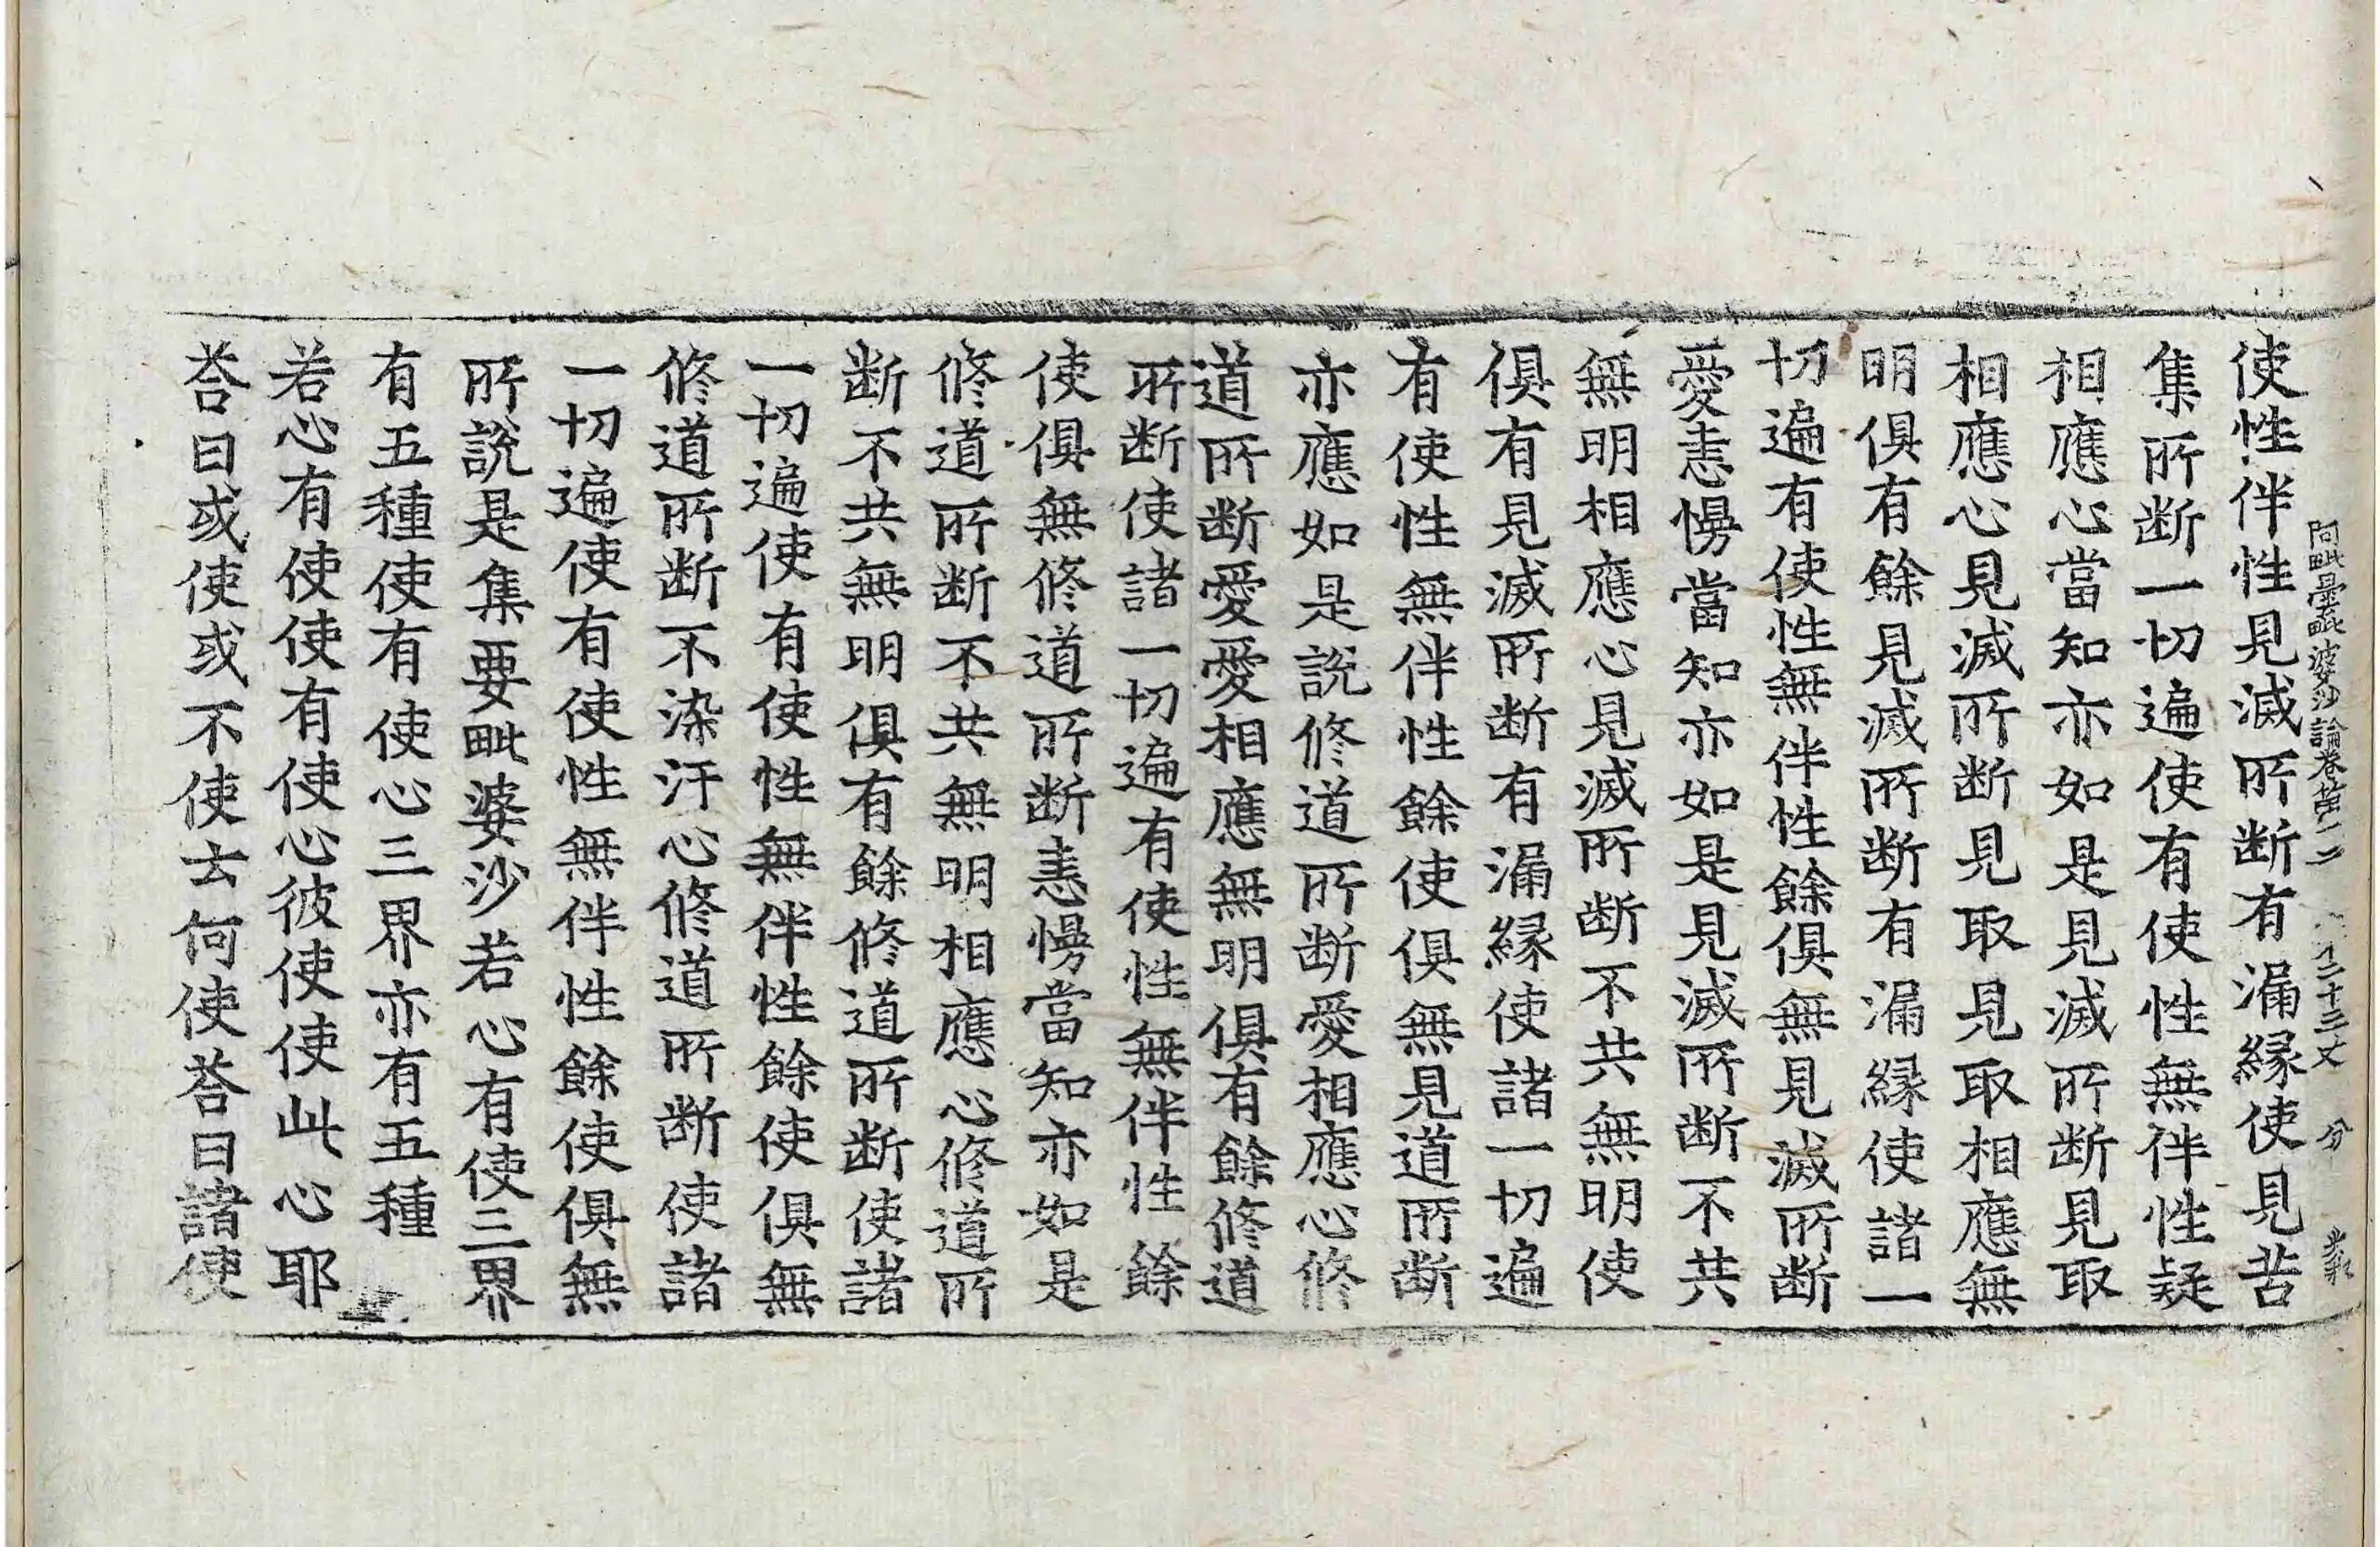 阿毗曇毗婆沙論卷第二二 二十三丈 分
使性伴性見滅所断有漏縁使見苦
集所断一切遍使有使性無伴性疑
相應心當知亦如是見滅所断見取
相應心見滅所断見取見取相應無
明俱有餘見滅所断有漏縁使諸一
切遍有使性無伴性餘俱無見滅所断
愛恚慢當知亦如是見滅所断不共
無明相應心見滅所断不共無明使
俱有見滅所断有漏縁使諸一切遍
有使性無伴性餘使俱無見道所断
亦應如是說修道所断愛相應心修
道所断愛愛相應無明俱有餘修道
所断使諸一切遍有使性無伴性餘
使俱無修道所断恚慢當知亦如是
修道所断不共無明相應心修道所
断不共無明俱有餘修道所断使諸
一切遍使有使性無伴性餘使俱無
修道所断不染汙心修道所断使諸
一切遍使有使性無伴性餘使俱無
所說是集要毗婆沙若心有使三界
有五種使有使心三界亦有五種
若心有使使有使心彼使使此心耶
荅曰或使或不使云何使荅曰諸使